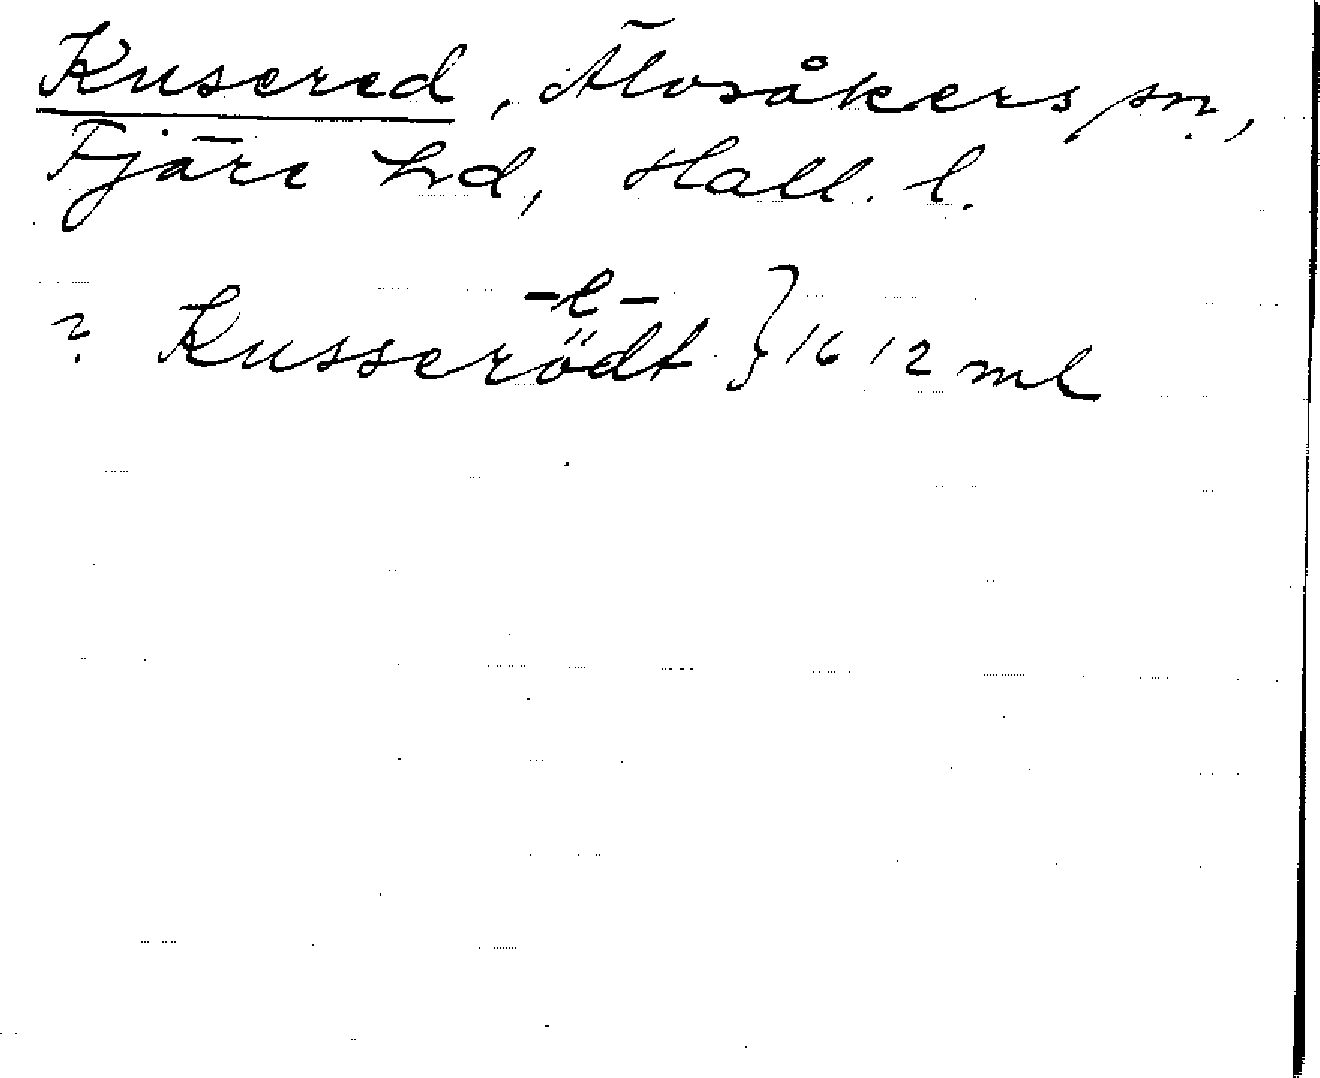 Kusered, Älvsåkers sn,
Fjäre hd, Hall. l.
-l-
? Kusserödt } 1612 ml